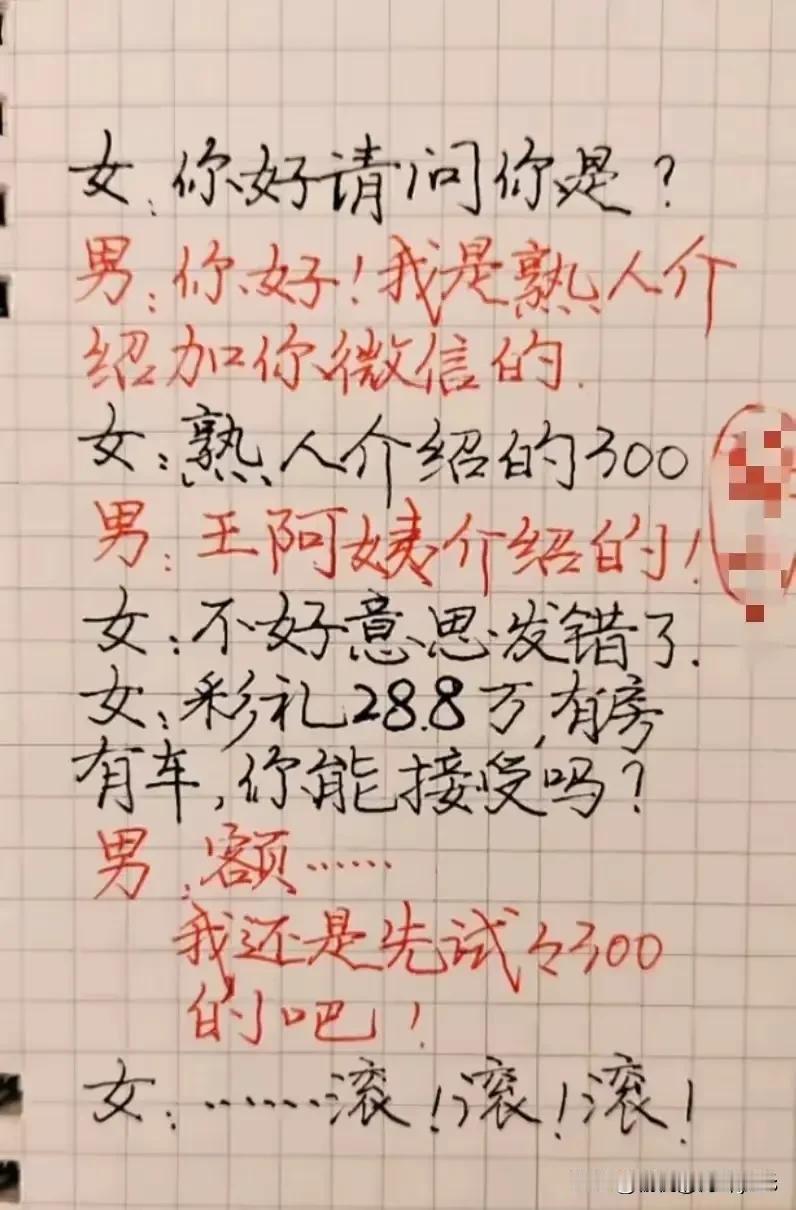 女:你好请问你是?
男:你好!我是熟人介
绍加你微信的.
女:熟人介绍的300
男:王阿姨介绍的!
女:不好意思发错了.
女:彩礼28.8万,有房
有车,你能接受吗?
男:额……
我还是先试々300
的吧!
女:……滚!滚!滚!